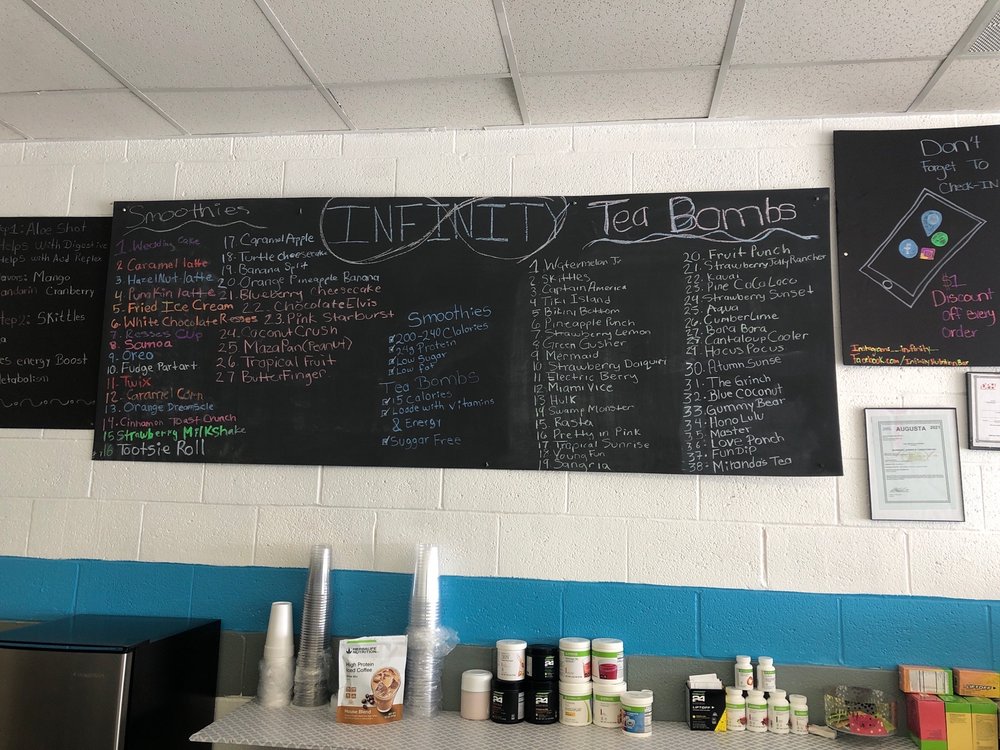 ep1: Aloe Shot
Helps With Digestive
Helps with Acid Reflex
lavors: Mango
Mandarin Cranberry
Step2: Skittles
es energy Boost
Metabolism
Smoothies
1. Wedding Cake
2. Caramel latte
3. HazelNut latte
4 PumpKin latte
5. Fried Ice Cream
6. White Chocolate Resses
7. Resses Cup
8. Samoa
9. Oreo
10. Fudge Partart
11. Twix
12. Caramel Corn
13. Orange Dreamsicle
14. Cinnamon Toast Crunch
15 Strawberry Milkshake
16 Tootsie Roll
17. Caramel Apple
18. Turtle cheesecake
19. Banana Split
20. Orange Pineapple Banana
21. Blueberry Cheesecake
22. Chocolate Elvis
23. Pink Starburst
24. Coconut Crush
25 MazaPan (Peanut)
26 Tropical Fruit
27 ButterFinger
INFINITY
Smoothies
200-240 Calories
24g Protein
Low Sugar
Low Fat
Tea Bombs
15 Calories
Loade with vitamins
& Energy
Suggar Free
Tea Bombs
1 Watermelon Jr
2 Skittles
3 Captain America
4 Tiki Island
5 Bikini Bottom
6 Pineapple Punch
7 Strawberry Lemon
8 Green Gusher
9 Mermaid
10 Strawberry Daiquiri
11 Electric Berry
12 Miami Vice
13 Hulk
14 Swamp Monster
15 Rasta
16 Pretty in Pink
17 Tropical Sunrise
18 Young Fun
19 Sangria
20. Fruit Punch
21. Strawberry Jolly Rancher
22. Kauai
23. Pine CoCo Loco
24. Strawberry Sunset
25. Aqua
26. CumberLime
27. Bora Bora
28. Cantaloup Cooler
29. Hocus Pocus
30. Atumn Sunset
31. The Grinch
32. Blue Coconut
33. Gummy Bear
34. HonoLulu
35. Master
36. Love Ponch
37. FunDip
38. Miranda's Tea
Don't
Forget To
Check-IN
$1
Discount
Off Every
Order
Instagram: infinity
Facebook.com/InfinityNutritionBar
AUGUSTA 2021
HERBALIFE
NUTRITION
High Protein
Iced Coffee
House Blend
LIFTOFF